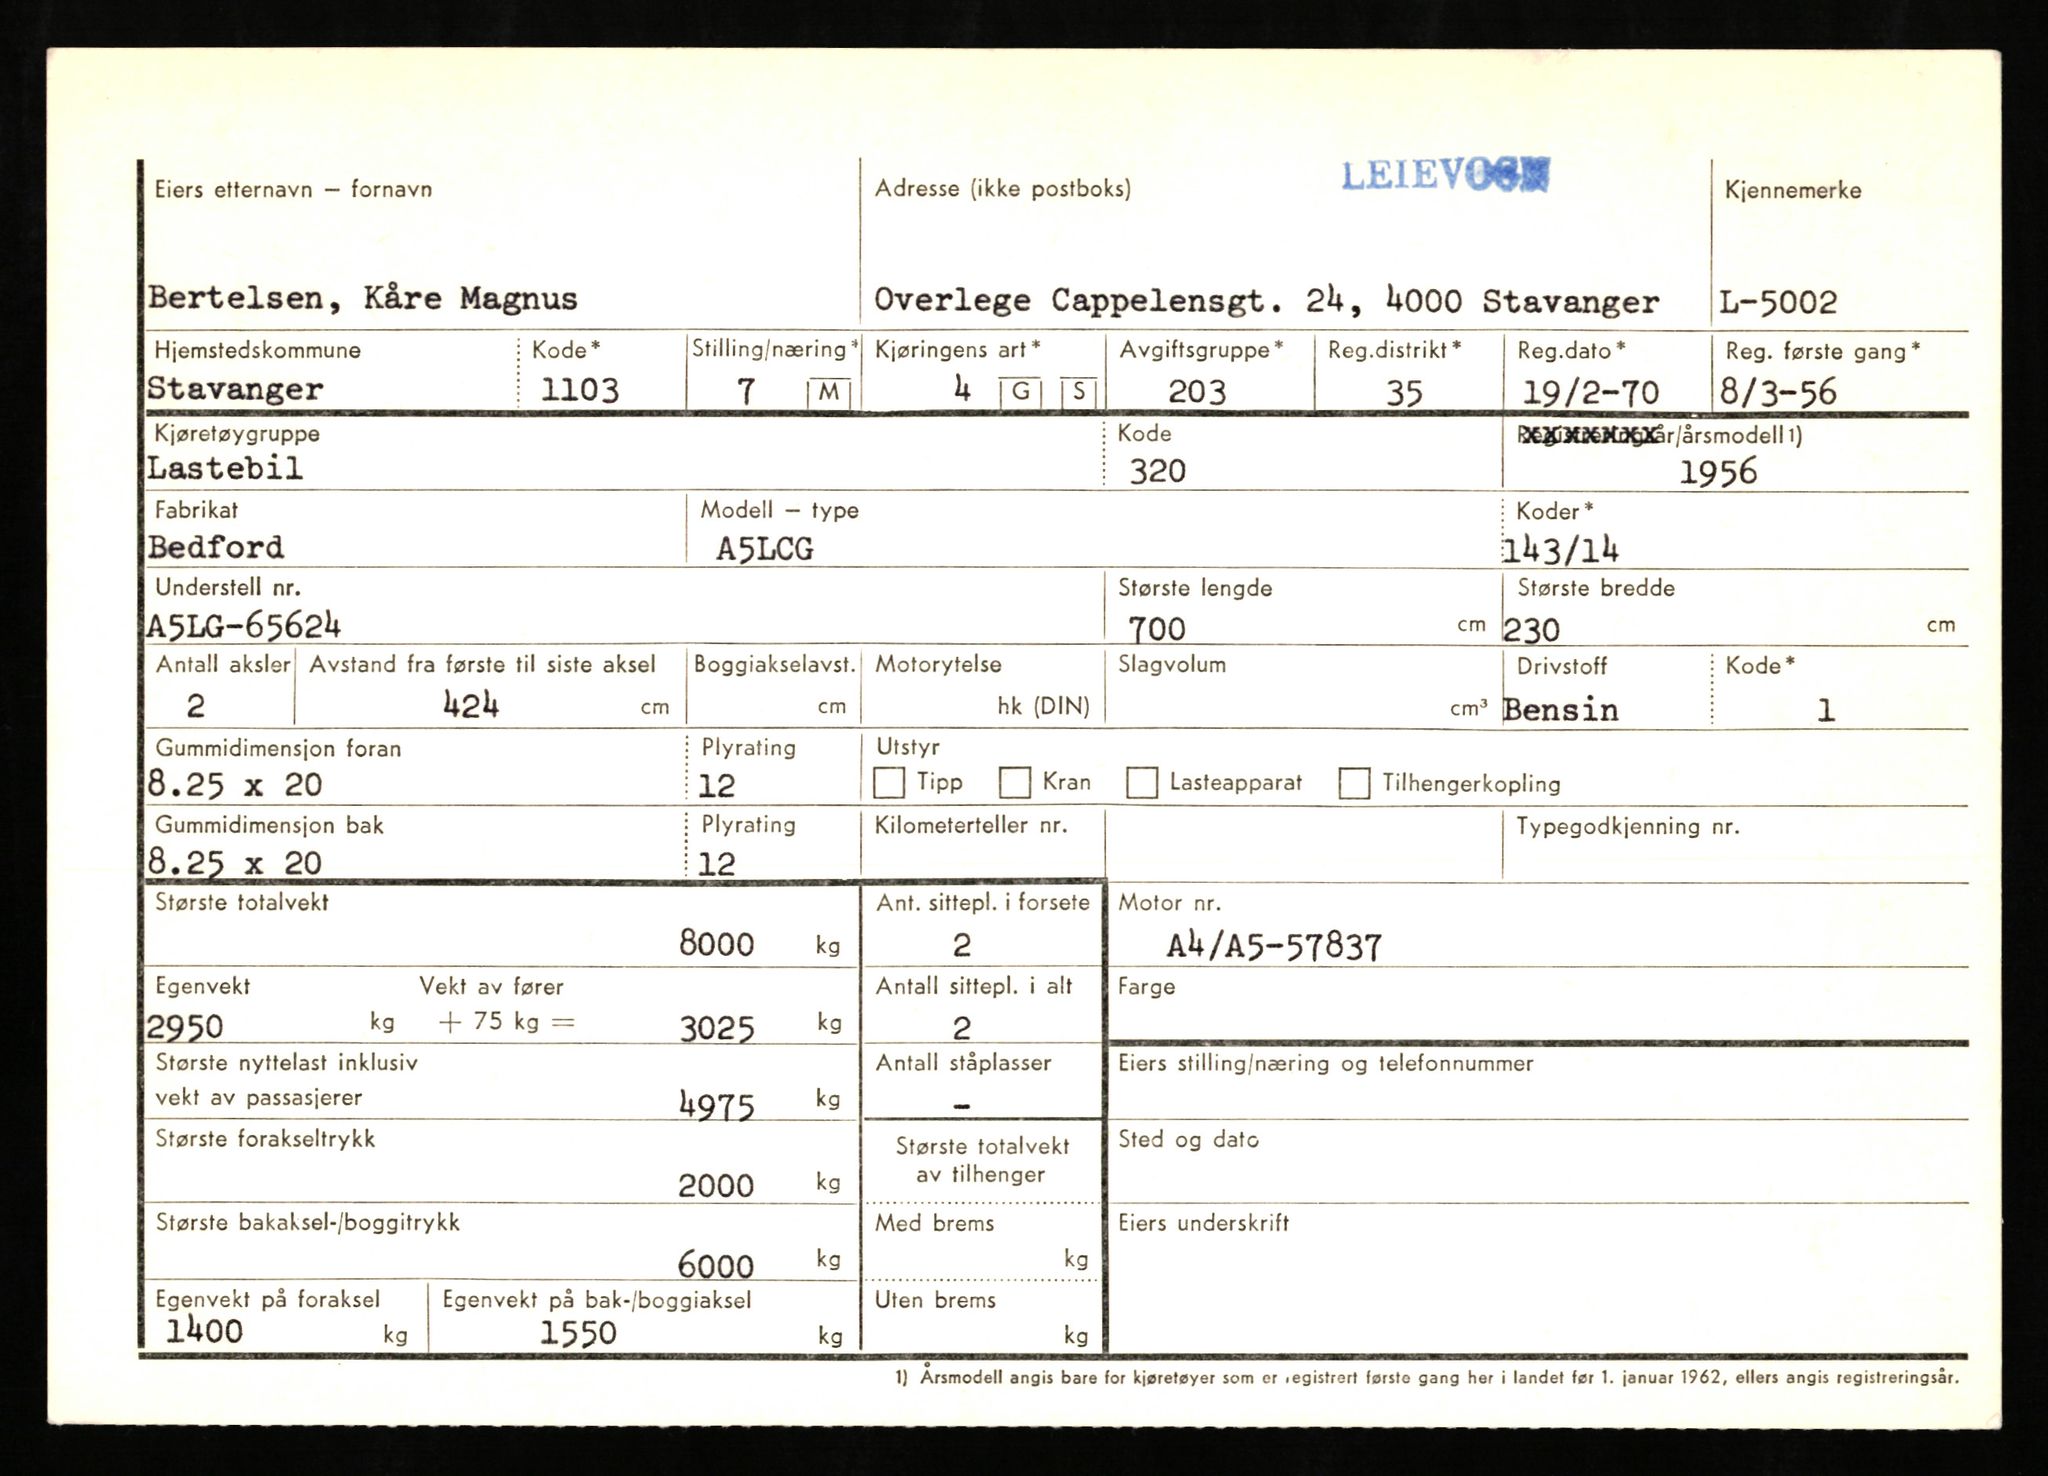 LEIEVOGN
Eiers etternavn – fornavn Adresse (ikke postboks) Kjennemerke
Bertelsen, Kåre Magnus Overlege Cappelensgt. 24, 4000 Stavanger L-5002
Hjemstedskommune Kode* Stilling/næring* Kjøringens art* Avgiftsgruppe* Reg.distrikt* Reg.dato* Reg. første gang*
Stavanger 1103 7 M 4 G S 203 35 19/2-70 8/3-56
Kjøretøygruppe Kode Registreringsår/årsmodell 1)
Lastebil 320 1956
Fabrikat Modell – type Koder*
Bedford A5LCG 143/14
Understell nr. Største lengde Største bredde
A5LG-65624 700 cm 230 cm
Antall aksler Avstand fra første til siste aksel Boggiakselavst. Motorytelse Slagvolum Drivstoff Kode*
2 424 cm cm hk (DIN) cm³ Bensin 1
Gummidimensjon foran Plyrating Utstyr
8.25 x 20 12 Tipp Kran Lasteapparat Tilhengerkopling
Gummidimensjon bak Plyrating Kilometerteller nr. Typegodkjenning nr.
8.25 x 20 12
Største totalvekt Ant. sittepl. i forsete Motor nr.
8000 kg 2 A4/A5-57837
Egenvekt Vekt av fører Antall sittepl. i alt Farge
2950 kg + 75 kg = 3025 kg 2
Største nyttelast inklusiv Antall ståplasser Eiers stilling/næring og telefonnummer
vekt av passasjerer 4975 kg –
Største forakseltrykk Største totalvekt Sted og dato
2000 kg av tilhenger
Største bakaksel-/boggitrykk Med brems Eiers underskrift
6000 kg kg
Egenvekt på foraksel Egenvekt på bak-/boggiaksel Uten brems
1400 kg 1550 kg kg
1) Årsmodell angis bare for kjøretøyer som er registrert første gang her i landet før 1. januar 1962, ellers angis registreringsår.